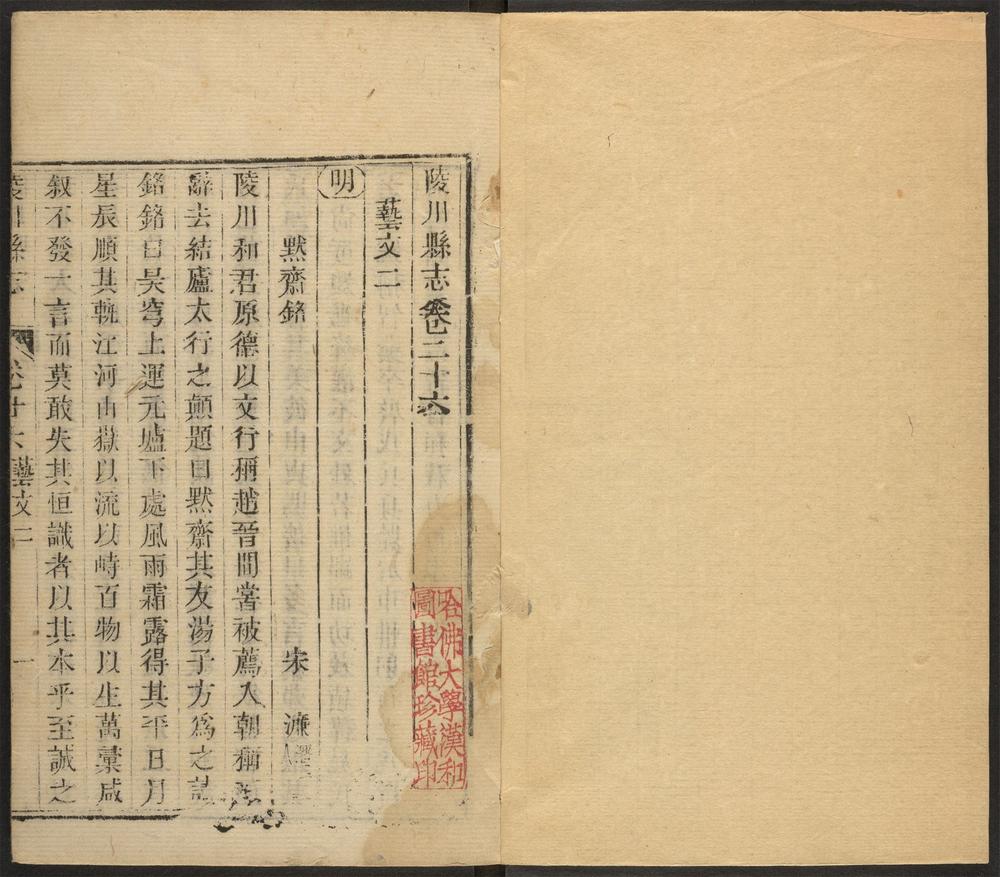 陵川縣志卷二十六
藝文二
明
默齋銘 宋濂
陵川和君原德以文行稱趙晉間嘗被薦入朝稱
辭去結廬太行之顛題曰默齋其友湯子方爲之記
銘銘曰昊穹上運元壚下處風雨霜露得其平日月
星辰順其軌江河山嶽以流以峙百物以生萬彙咸
叙不發一言而莫敢失其恒識者以其本乎至誠之
陵川縣志 卷廿六 藝文二 一
哈佛大學漢和
圖書館珍藏印